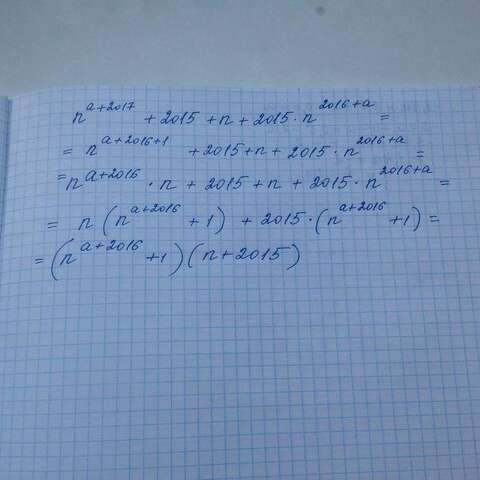 n^{a+2017} + 2015 + n + 2015 · n^{2016+a} =
= n^{a+2016+1} + 2015 + n + 2015 · n^{2016+a} =
= n^{a+2016} · n + 2015 + n + 2015 · n^{2016+a} =
= n (n^{a+2016} + 1) + 2015 · (n^{a+2016} + 1) =
= (n^{a+2016} + 1) (n + 2015)